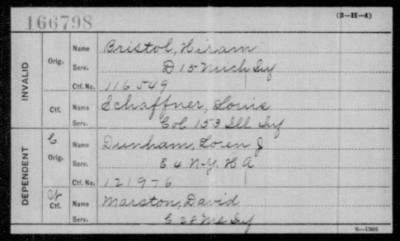 166798
(3—H—4)
INVALID
Orig.
Name Bristol, Hiram
Serv. D 15 Mich Inf
Ctf. No. 116549
Ctf.
Name Schaffner, Louis
Serv. Col 153 Ill Inf
DEPENDENT
C
Orig.
Name Dunham, Loren J
Serv. E 4 N.Y. H A
Ctf. No. 12197-6
Ctf.
Name Marston, David
Serv. E 28 Me Inf